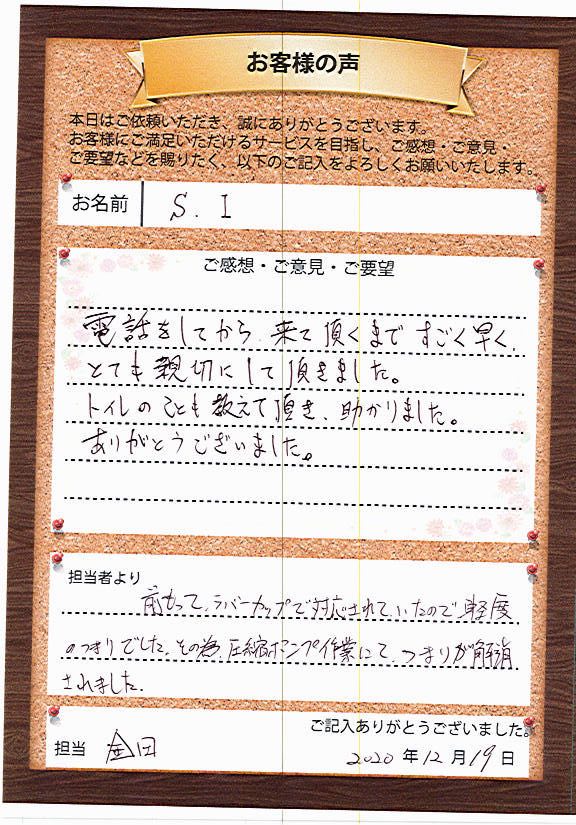 お客様の声
本日はご依頼いただき、誠にありがとうございます。
お客様にご満足いただけるサービスを目指し、ご感想・ご意見・
ご要望などを賜りたく、以下のご記入をよろしくお願いいたします。
お名前 S. I
ご感想・ご意見・ご要望
電話をしてから、来て頂くまで すごく早く、
とても親切にして頂きました。
トイレのことも教えて頂き、助かりました。
ありがとうございました。
担当者より
前もって、ラバーカップで対応されていたので軽度
のつまりでした。その為、圧縮ポンプ作業にて、つまりが解消
されました。
ご記入ありがとうございました。
担当 金田
2020 年 12 月 19 日